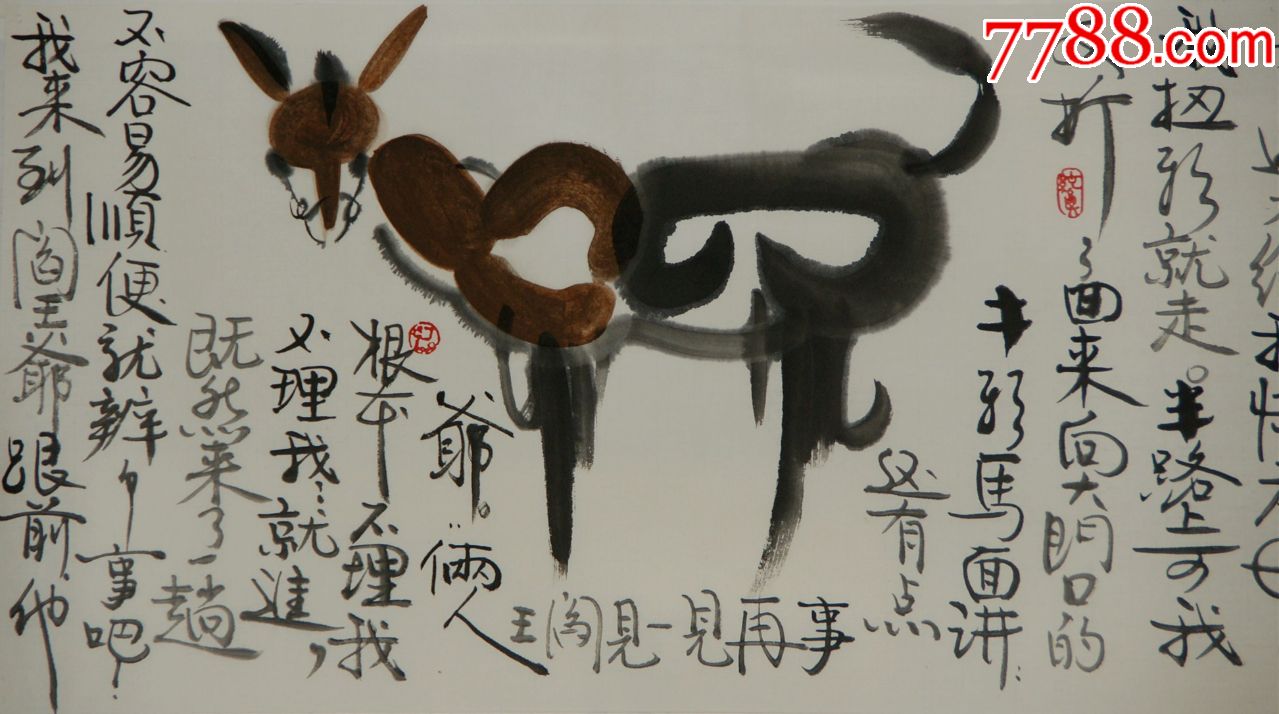 7788.com
我扭头就走。半路上可我
又折了回来向大门口的
牛头马面讲:
还有点
事再見一見阎王
爺。"俩人
根本不理我
不理我:就進,
既然来了一趟
不容易順便就辦个事吧!
我来到阎王爺跟前,他